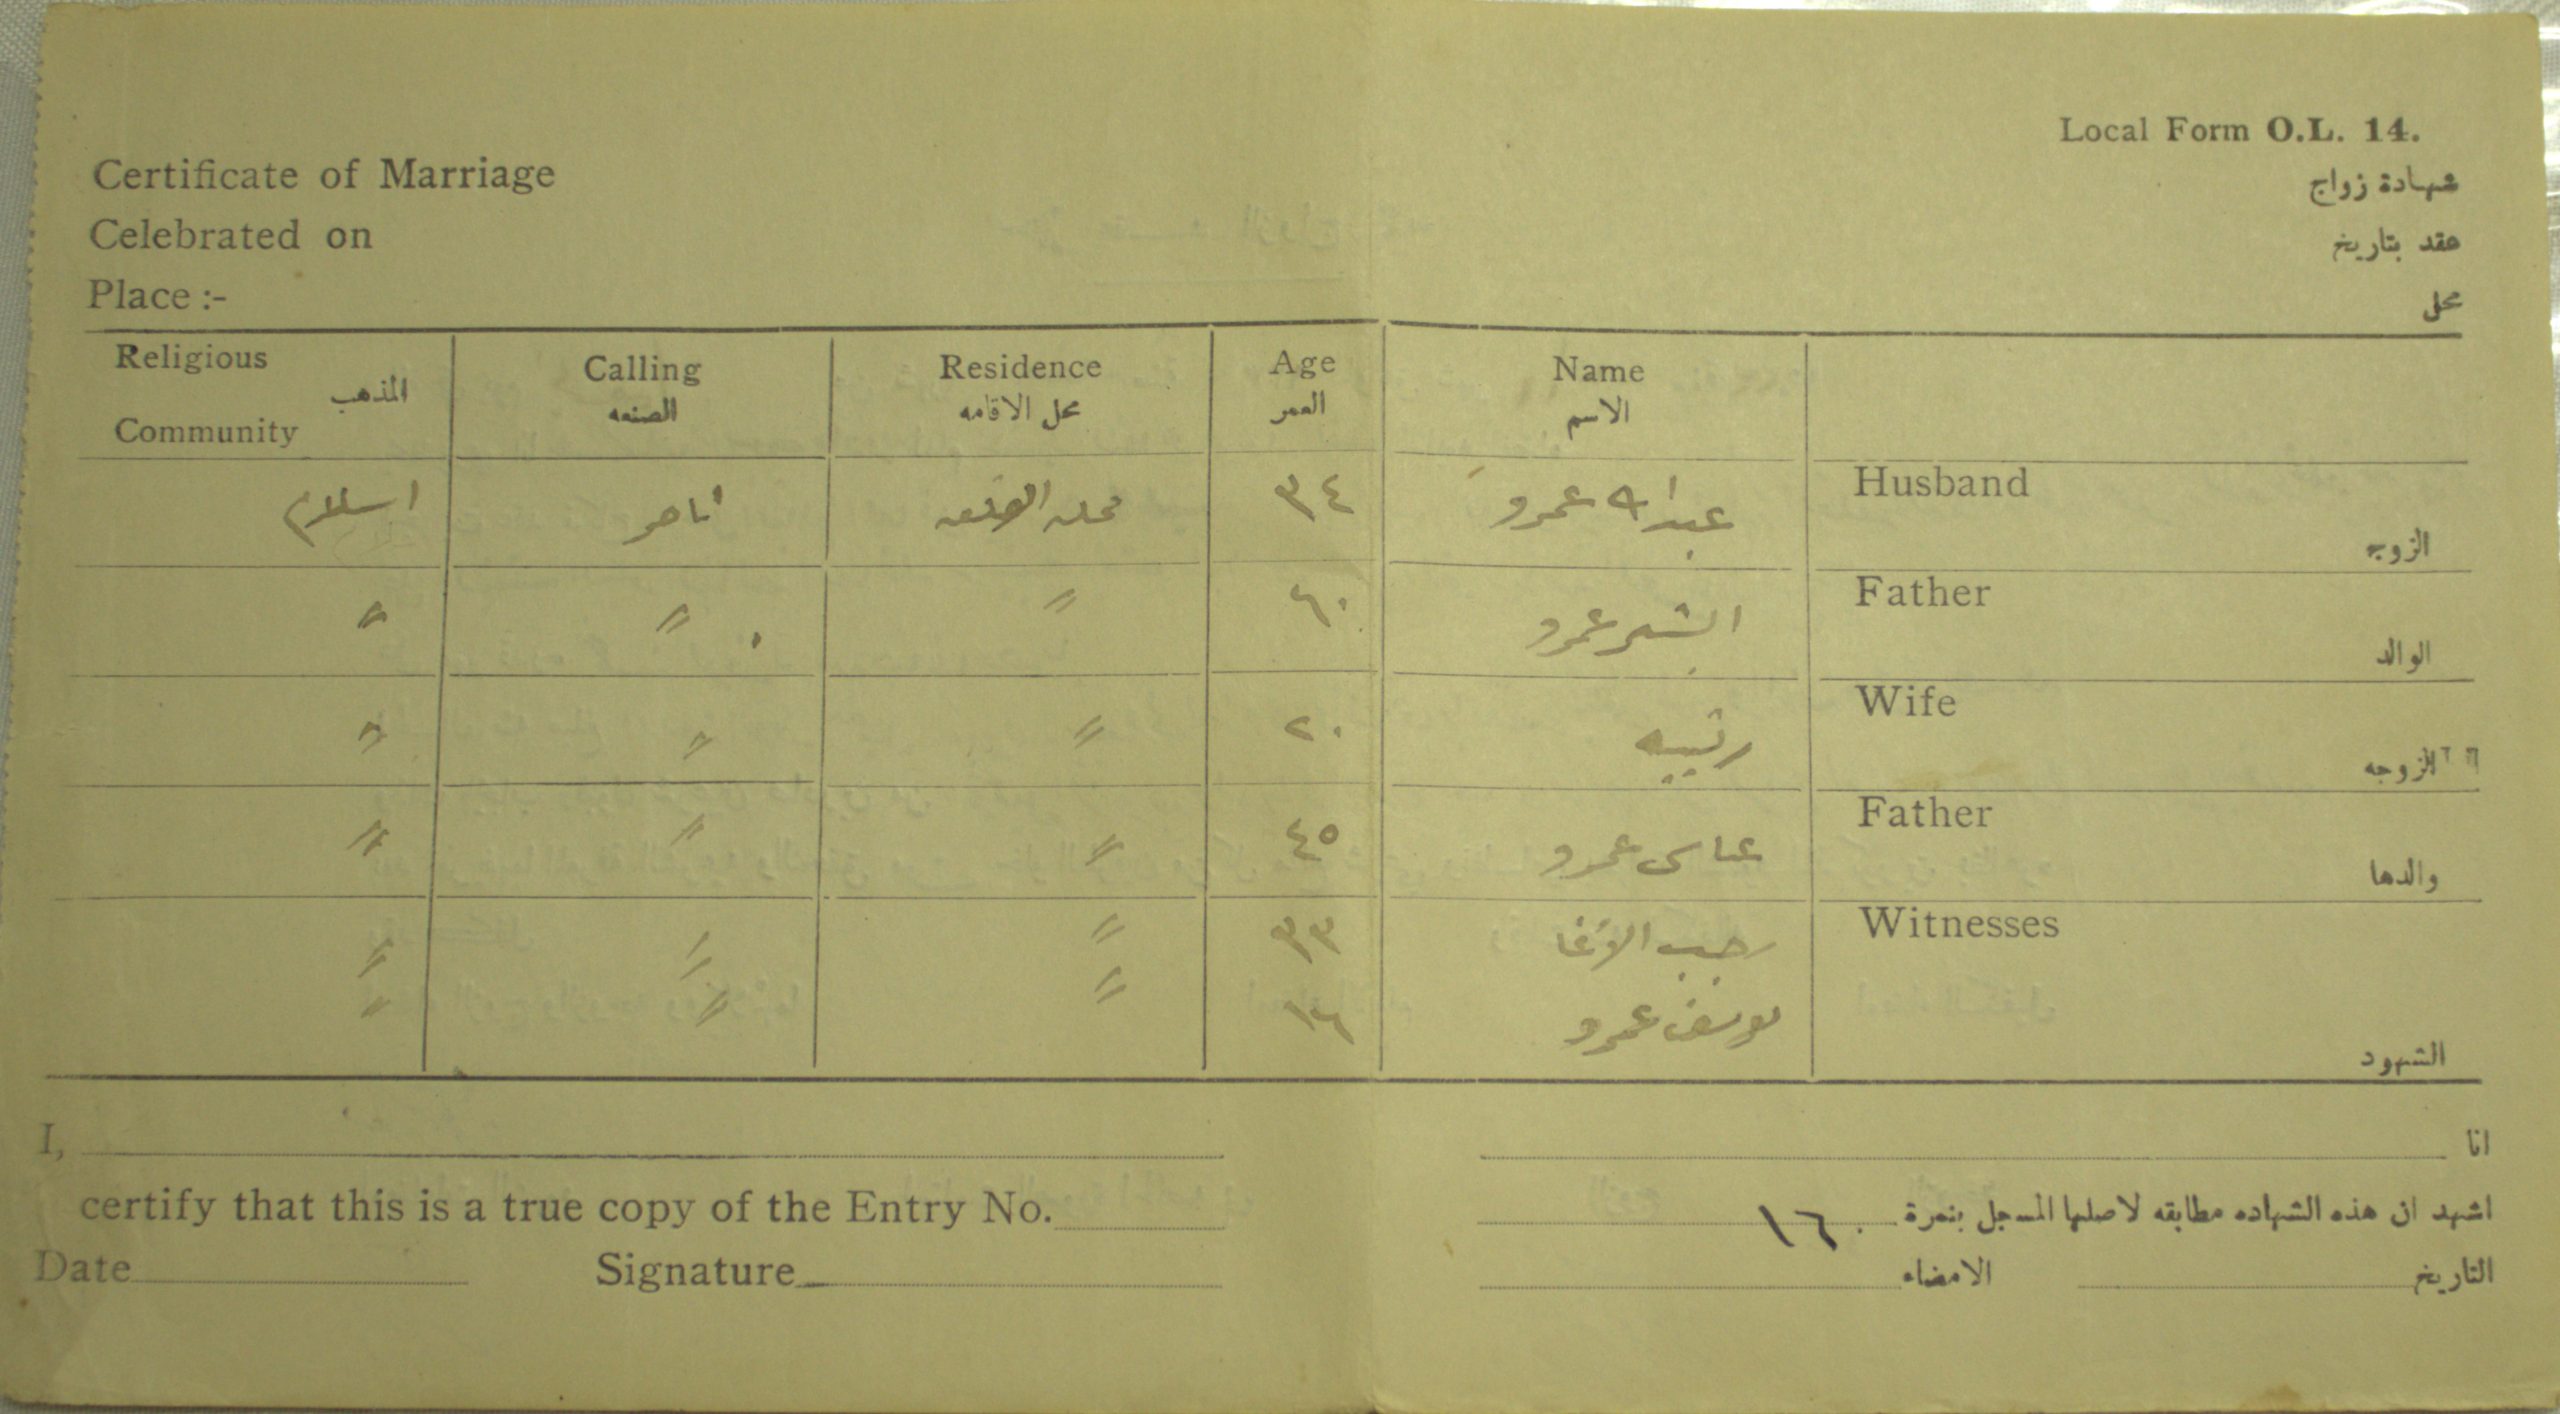 Local Form O.L. 14.
Certificate of Marriage شهادة زواج
Celebrated on عقد بتاريخ
Place :- محل
Religious Community المذهب Calling الصنعه Residence محل الاقامه Age العمر Name الاسم
Husband الزوج عبدالله عمرو ٣٤ محلة القلعه تاجر اسلام
Father الوالد عمرو ٦٠ " " "
Wife الزوجه رتيبه ٢٠ " " "
Father والدها عباس عمرو ٤٥ " " "
Witnesses رجب الاغا ٣٣ " " "
الشهود يوسف عمرو ١٦ " " "
I, انا
certify that this is a true copy of the Entry No. اشهد ان هذه الشهاده مطابقه لاصلها المسجل بنمرة ١٦٠
Date Signature التاريخ الامضاء